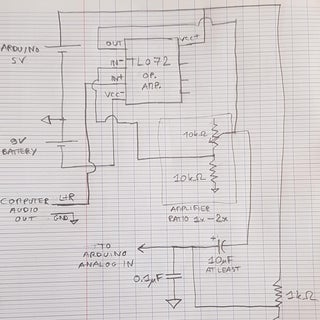 OUT
VCC+
ARDUINO
5V
IN-
TL072
IN+
OP.
AMP.
VCC-
10kΩ
9V
BATTERY
10kΩ
COMPUTER
AUDIO
OUT
L+R
GND
AMPLIFIER
RATIO 1x-2x
TO
ARDUINO
ANALOG IN
+
10µF
AT LEAST
0.1µF
1kΩ